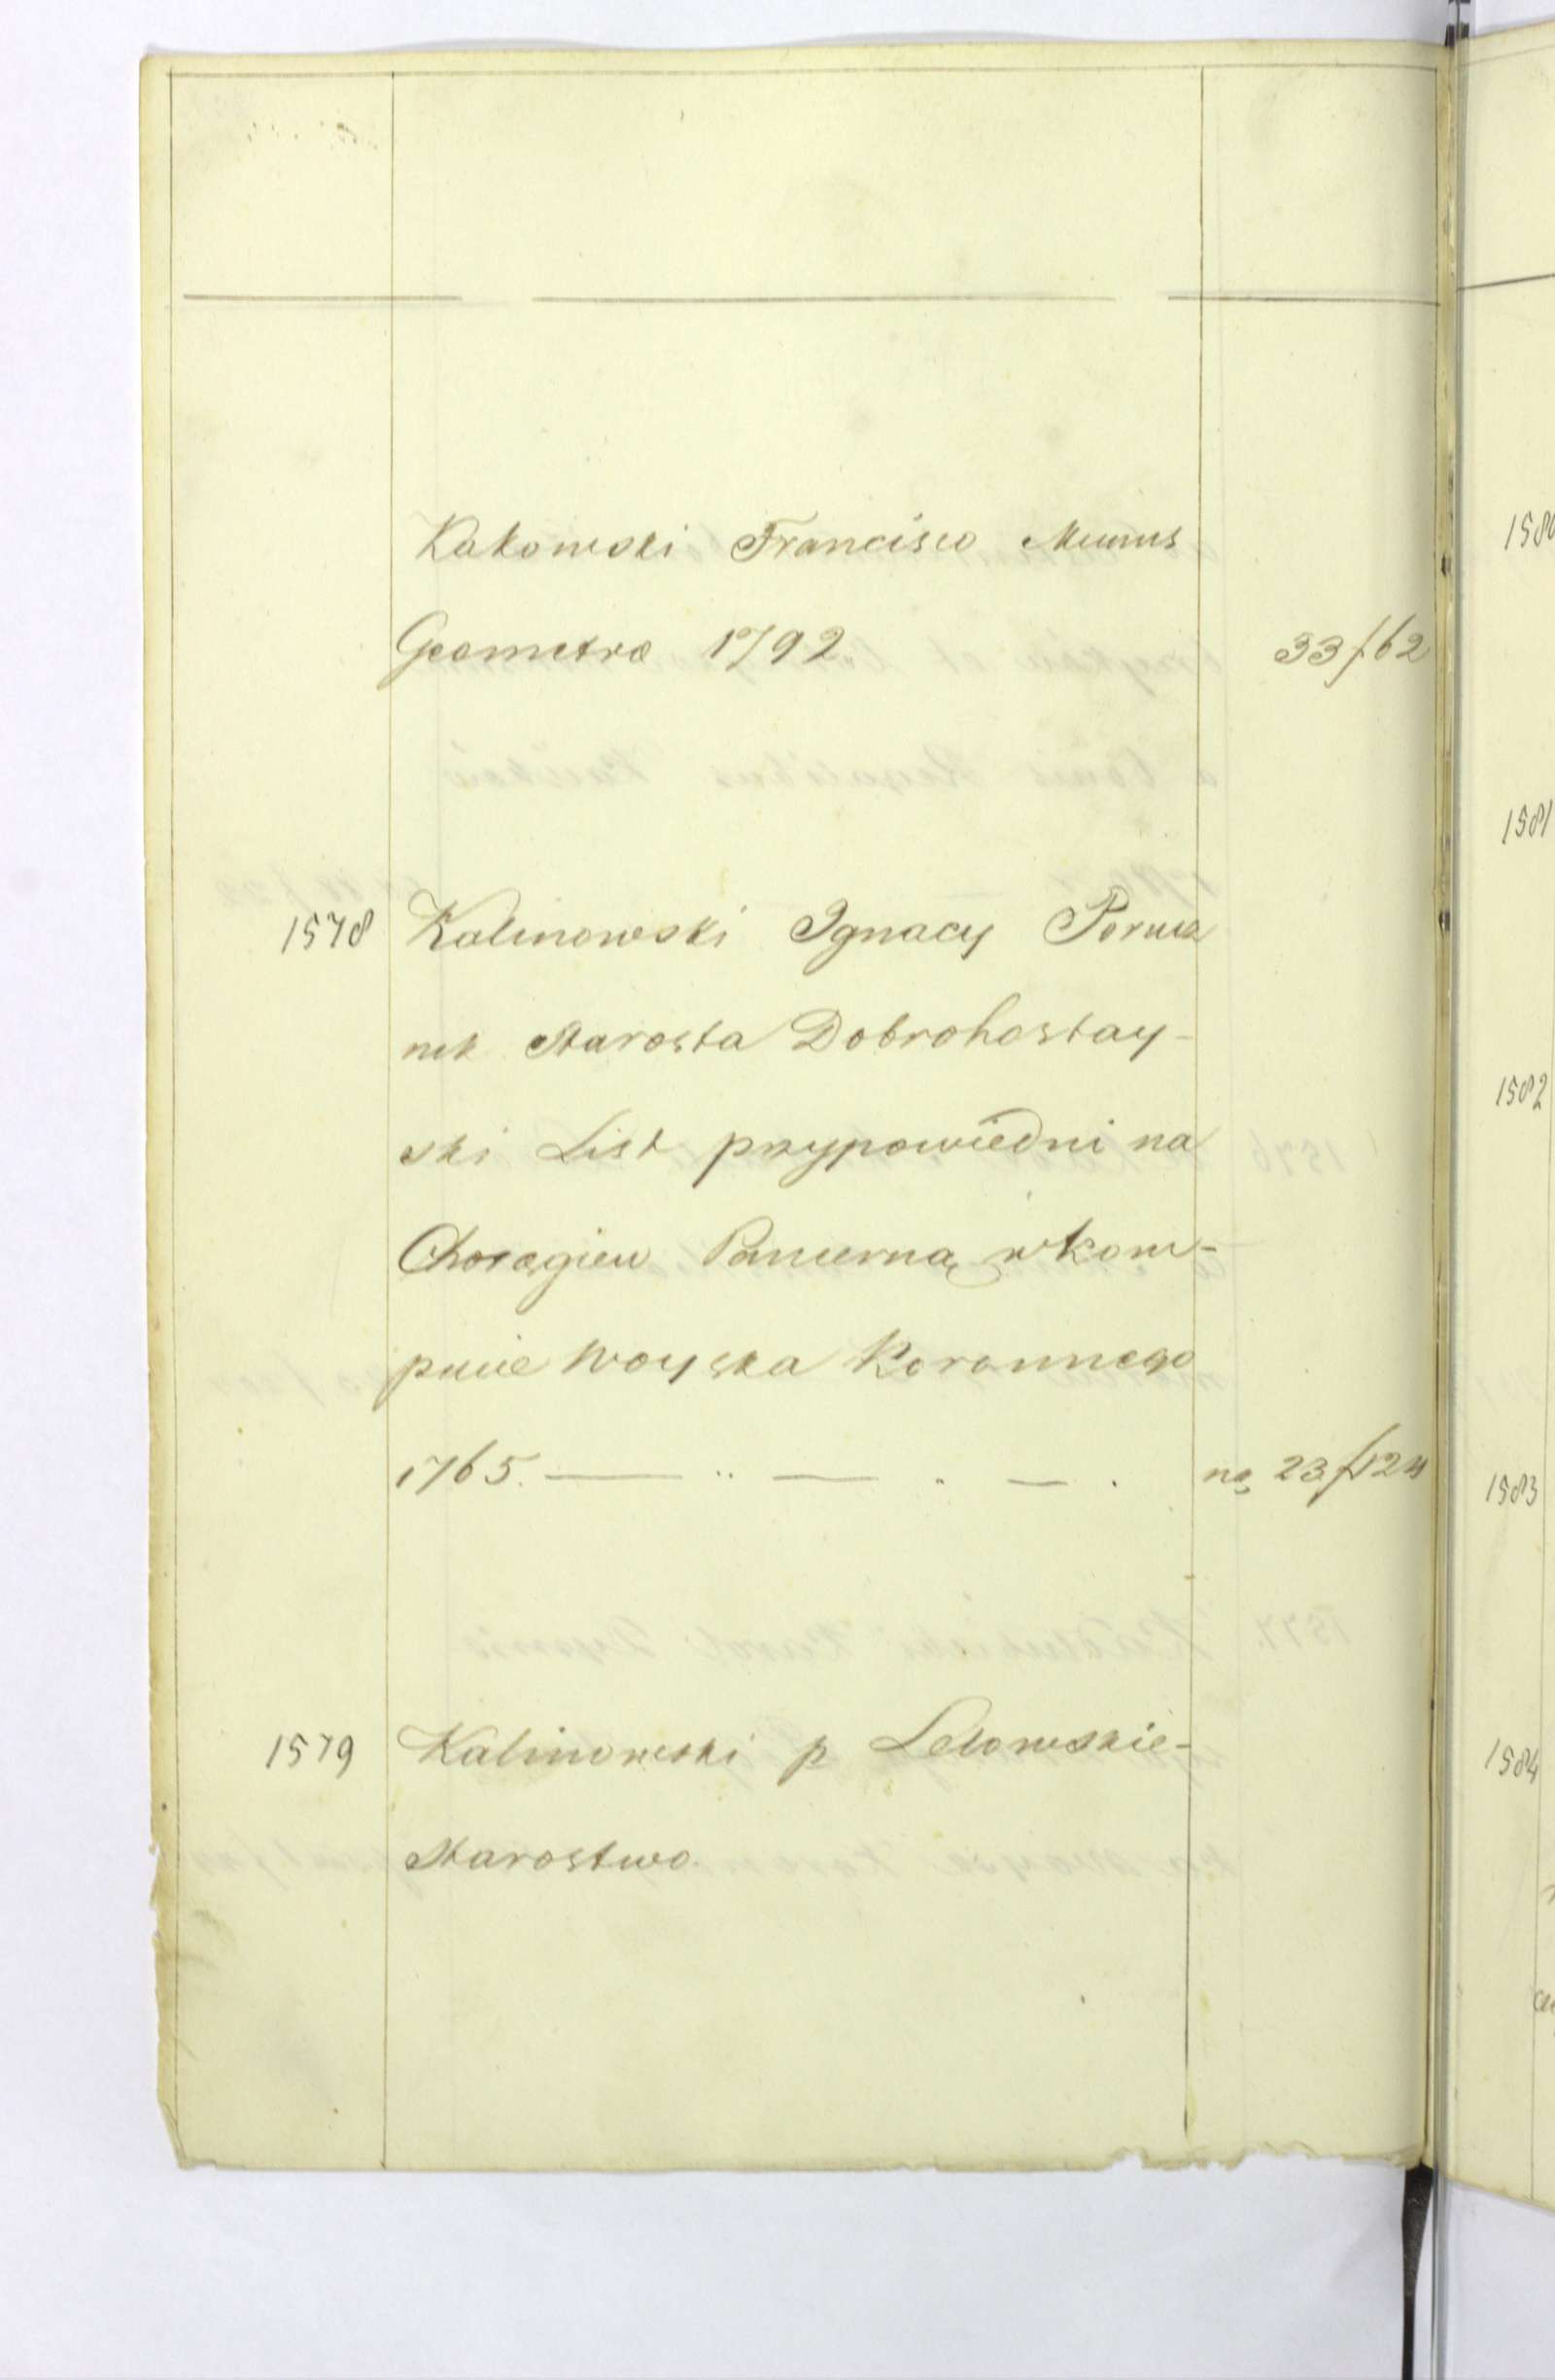 Kakowski Francisco Munus
Geometrae 1792. 33 f 62
1578 Kalinowski Ignacy Porucz
nik Starosta Dobrohostay-
ski List przypowiedni na
Chorągiew Pancerną w kom-
pucie Woyska Koronnego
1765. — .. — . — . na 23 f 124
1579 Kalinowski p Lelowskie-
Starostwo.
1580
1581
1582
1583
1584